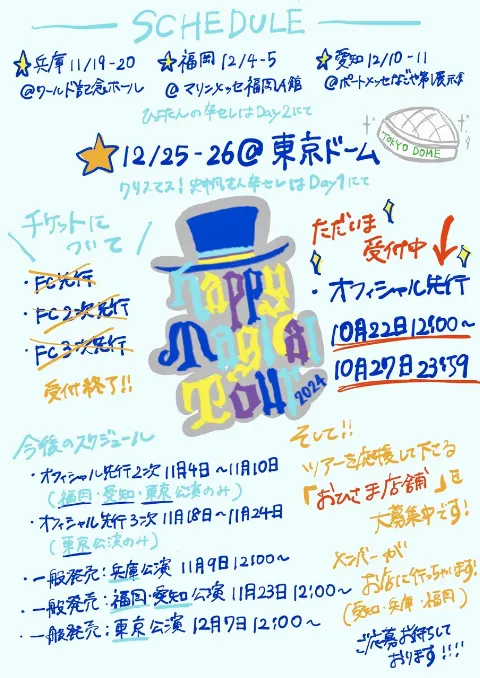 SCHEDULE
兵庫 11/19-20
@ワールド記念ホール
福岡 12/4-5
@マリンメッセ福岡A館
愛知 12/10-11
@ポートメッセなごや第1展示館
ひよたんの幸せレはDay2にて
12/25-26@東京ドーム
TOKYO DOME
クリスマス!史帆さん卒セレはDay1にて
チケットに
ついて
・FC先行
・FC2次先行
・FC3次先行
受付終了!!
Happy
Magical
Tour
2024
ただいま
受付中
・オフィシャル先行
10月22日12:00~
10月27日23:59
今後のスケジュール
・オフィシャル先行2次 11月4日~11月10日
(福岡・愛知・東京公演のみ)
・オフィシャル先行3次 11月18日~11月24日
(東京公演のみ)
・一般発売:兵庫公演 11月9日12:00~
・一般発売:福岡・愛知公演 11月23日12:00~
・一般発売:東京公演 12月7日12:00~
そして!!
ツアーを応援して下さる
「おひさま店舗」を
大募集中です!
メンバーが
お店に行っちゃいます!
(愛知・兵庫・福岡)
ご応募お待ちして
おります!!!!